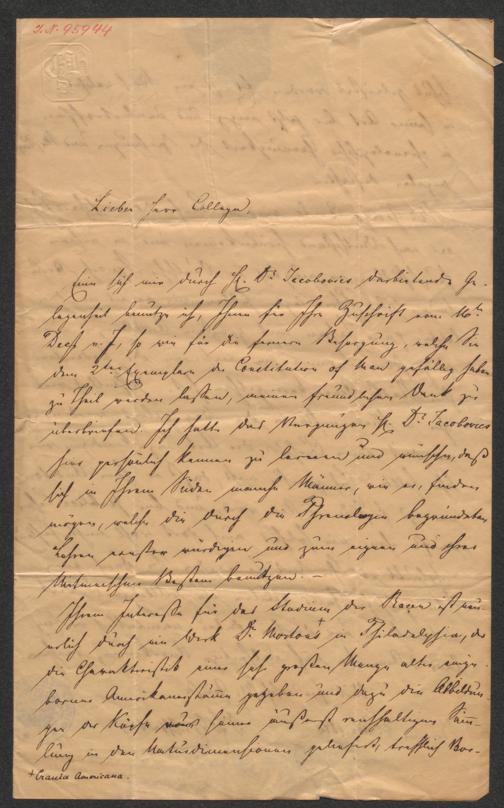 I. N. 95944
Lieber Herr College,
Eine sich mir durch H. Dr. Jacobovics darbietende Ge-
legenheit benutze ich, Ihnen für Ihre Zuschrift vom 16ten
Decb v. J., so wie für die fernere Besorgung, welche Sie
dem 2ten Exemplare der Constitution of Man gefällig haben
zu Theil werden lassen, meinen freundlichen Dank zu
überbriefen. Ich hatte das Vergnügen H. Dr. Jacobovics
hier persönlich kennen zu lernen und wünsche, daß
sich in Ihrem Süden manche Männer, wie er, finden
mögen, welche die durch die Phrenologie begründeten
Lehren ernster würdigen und zum eigenen und ihrer
Mitmenschen Besten benutzen. –
Ihrem Interesse für das Studium der Racen ist neu-
erlich durch ein Werk Dr. Mortons + in Philadelphia, der
die Charakteristik einer sehr großen Menge alter einge-
borner Amerikanerstämme gegeben und dazu die Abbildun-
gen der Köpfe seiner äußerst reichhaltigen Samm-
lung in den Naturdimensionen geliefert, trefflich Vor-
+ Crania Americana.